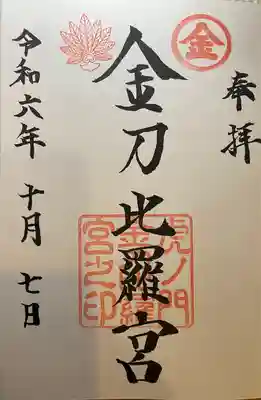 奉拝
金
金刀比羅宮
虎ノ門
金刀比羅
宮之印
令和六年 十月 七日